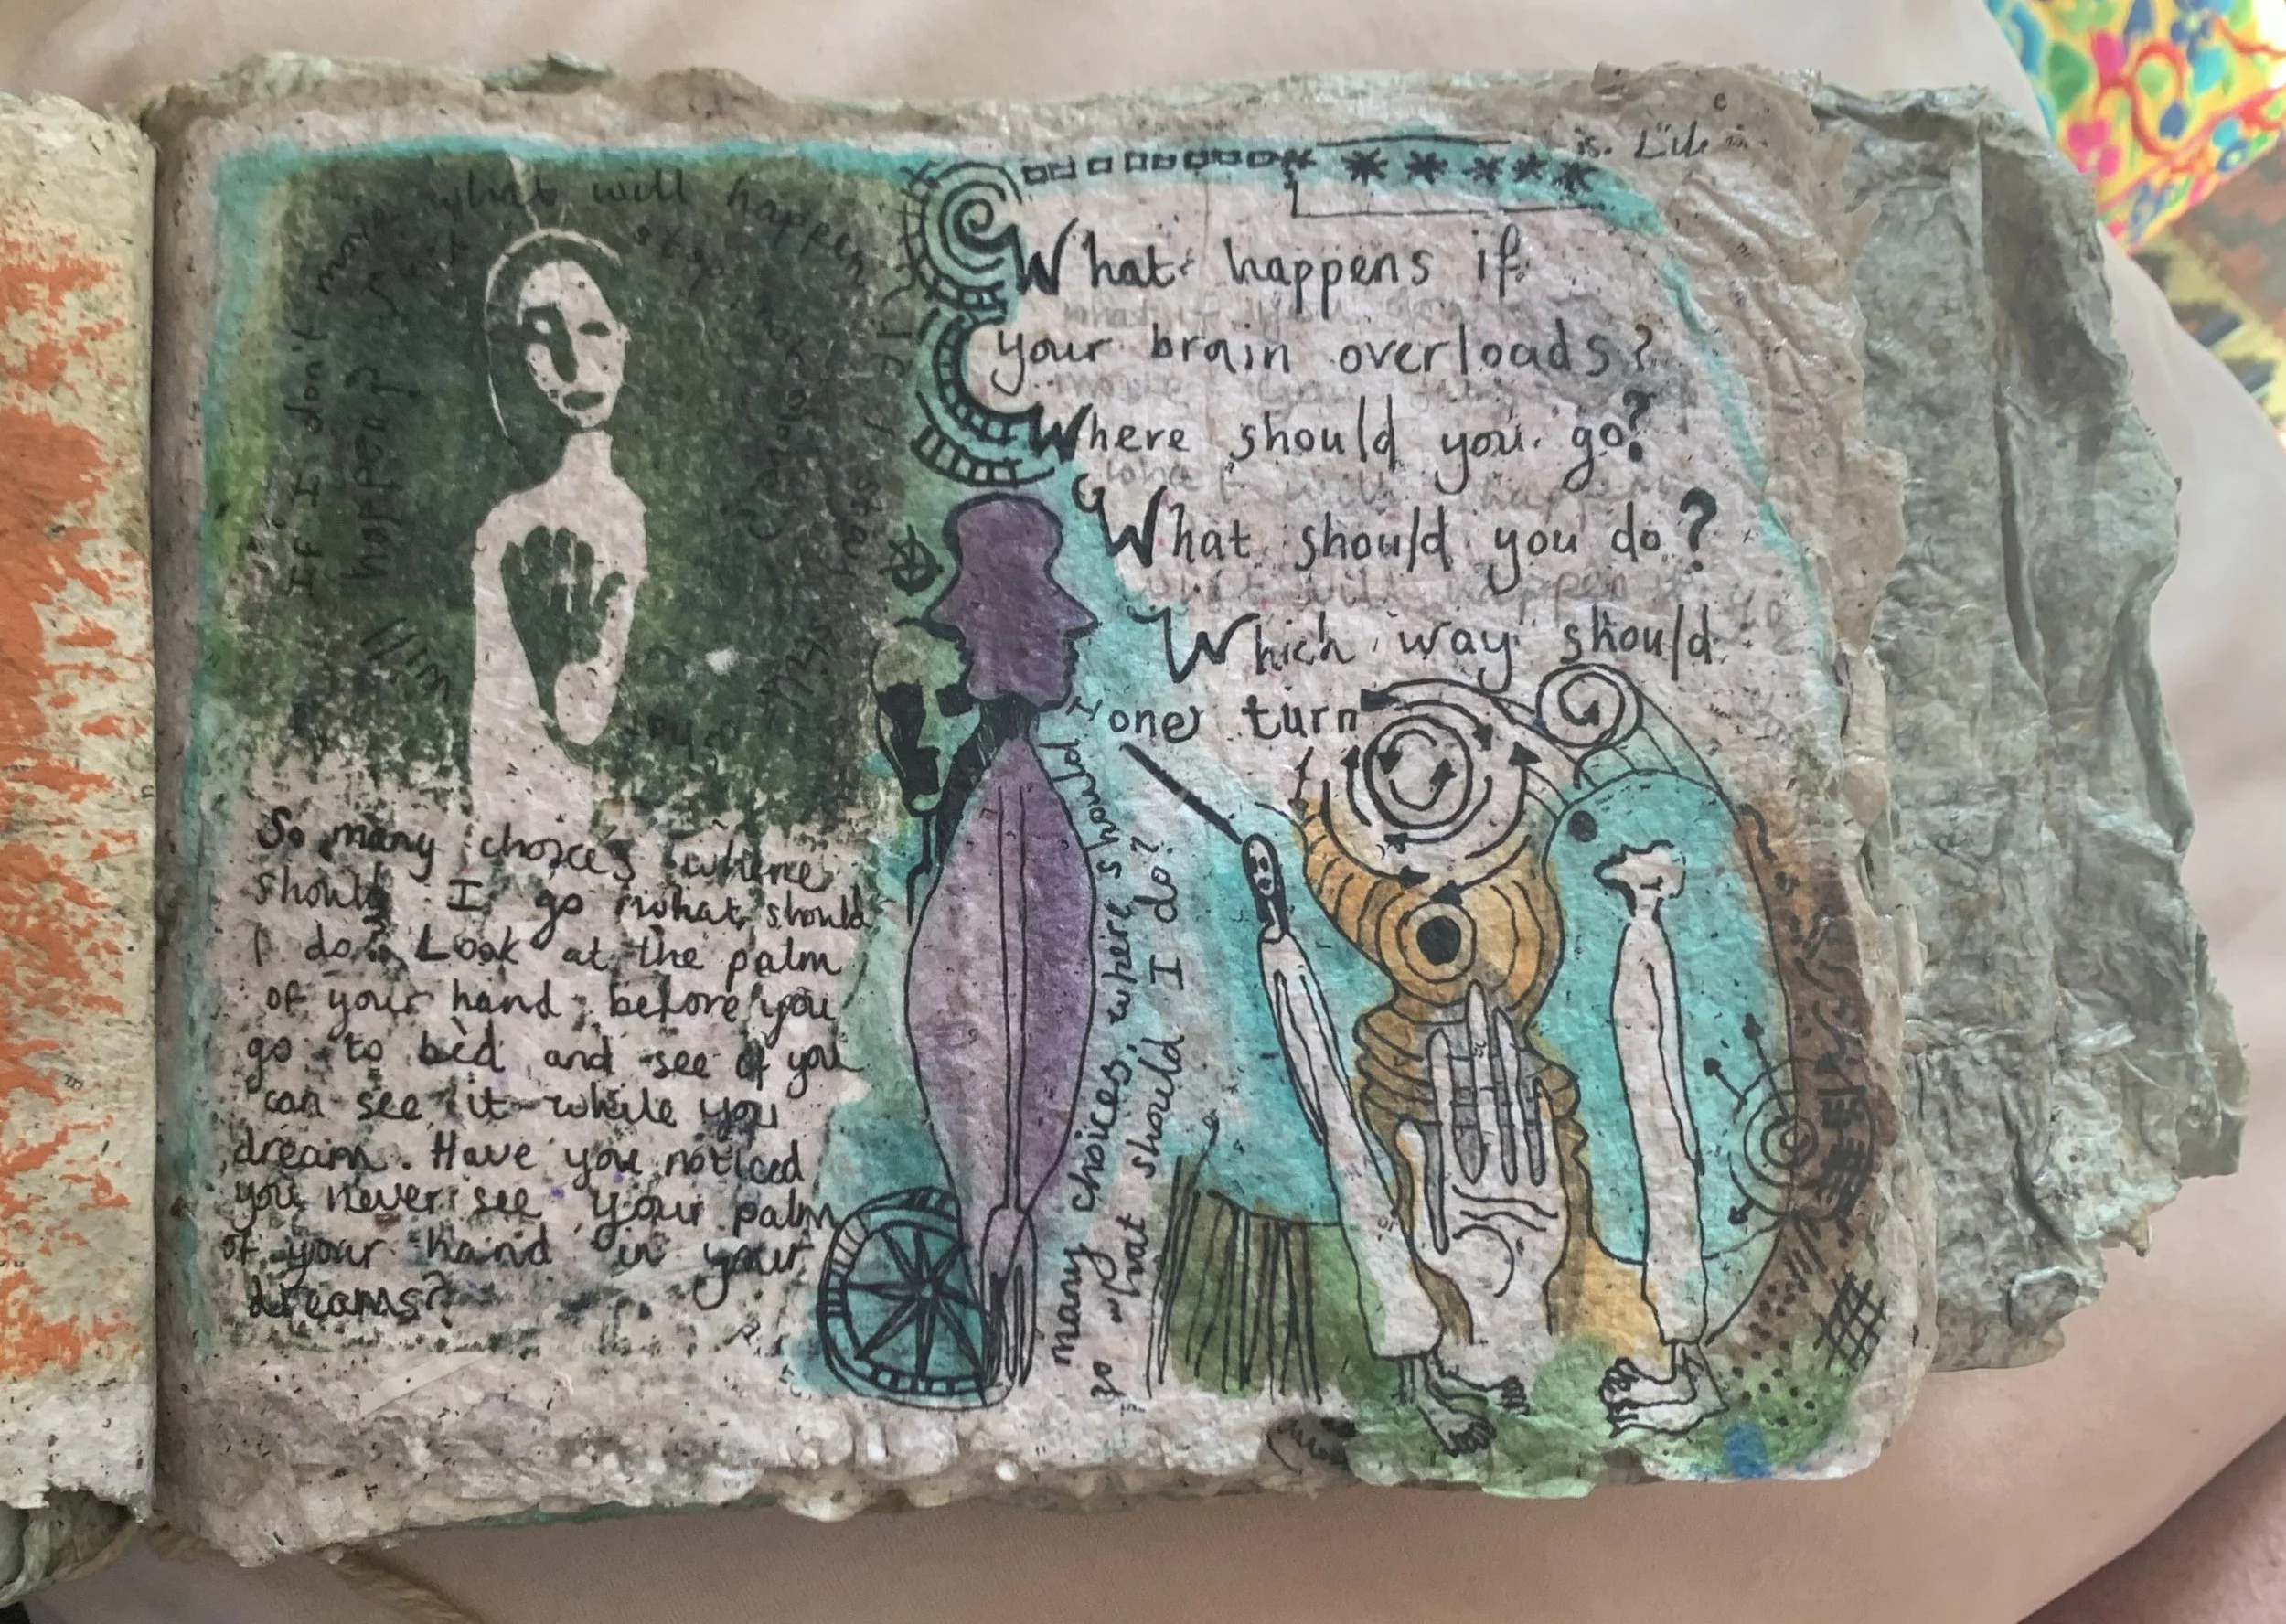 what will happen
If I don't move
happen if
stop
will
What happens if
your brain overloads?
Where should you go?
What should you do?
Which way should
one turn
I
So many choices where
should I go what should
I do? Look at the palm
of your hand before you
go to bed and see if you
can see it while you
dream. Have you noticed
you never see your palm
of your hand in your
dreams?
so many choices, where should I
go what should I do?